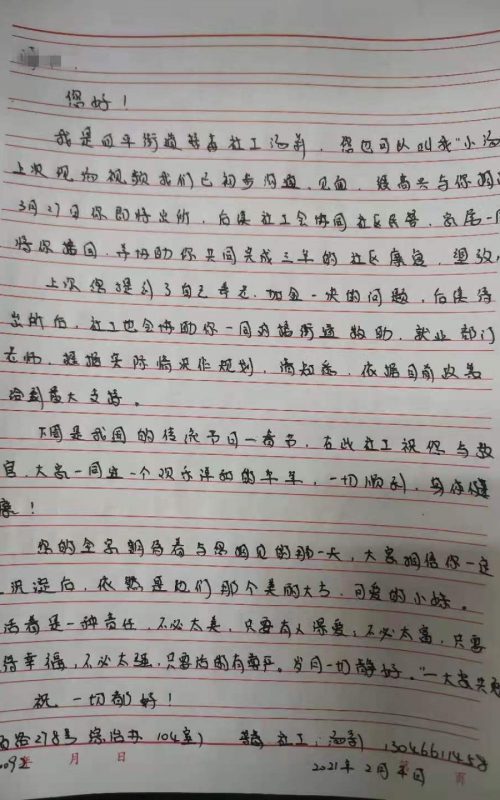 您好！
我是四平街道禁毒社工汤莉，您也可以叫我"小汤
上次现场视频我们已初步沟通、见面，很高兴与你
3月27日你即将出所，后续社工会协同社区民警、家属一同
将你接回，并协助你共同完成三年的社区康复
上次您提到了自己
的问题，后续待
出所后，社工也会协助你一同对接街道救助、就业部门
老师，根据实际情况作规划，请知悉，依据目前政策
给到最大支持。
下周是我国的传统节日—春节，在此社工祝你与教
官、大家一同过一个欢乐祥和的牛年，一切顺利，身体健
康！
你的全家期待着与您相见的那一天，大家相信你一定
沉淀后，依然是他们那个美丽大方、可爱的小妹。
活着是一种责任，不必太美，只要有人深爱；不必太富，只要
得幸福，不必太强，只要活的有尊严。岁月一切静好，
祝 一切都好！
西路278号综治办104室） 禁毒社工：汤莉 13046611458
0092 年 月 日 2021年2月 第 页